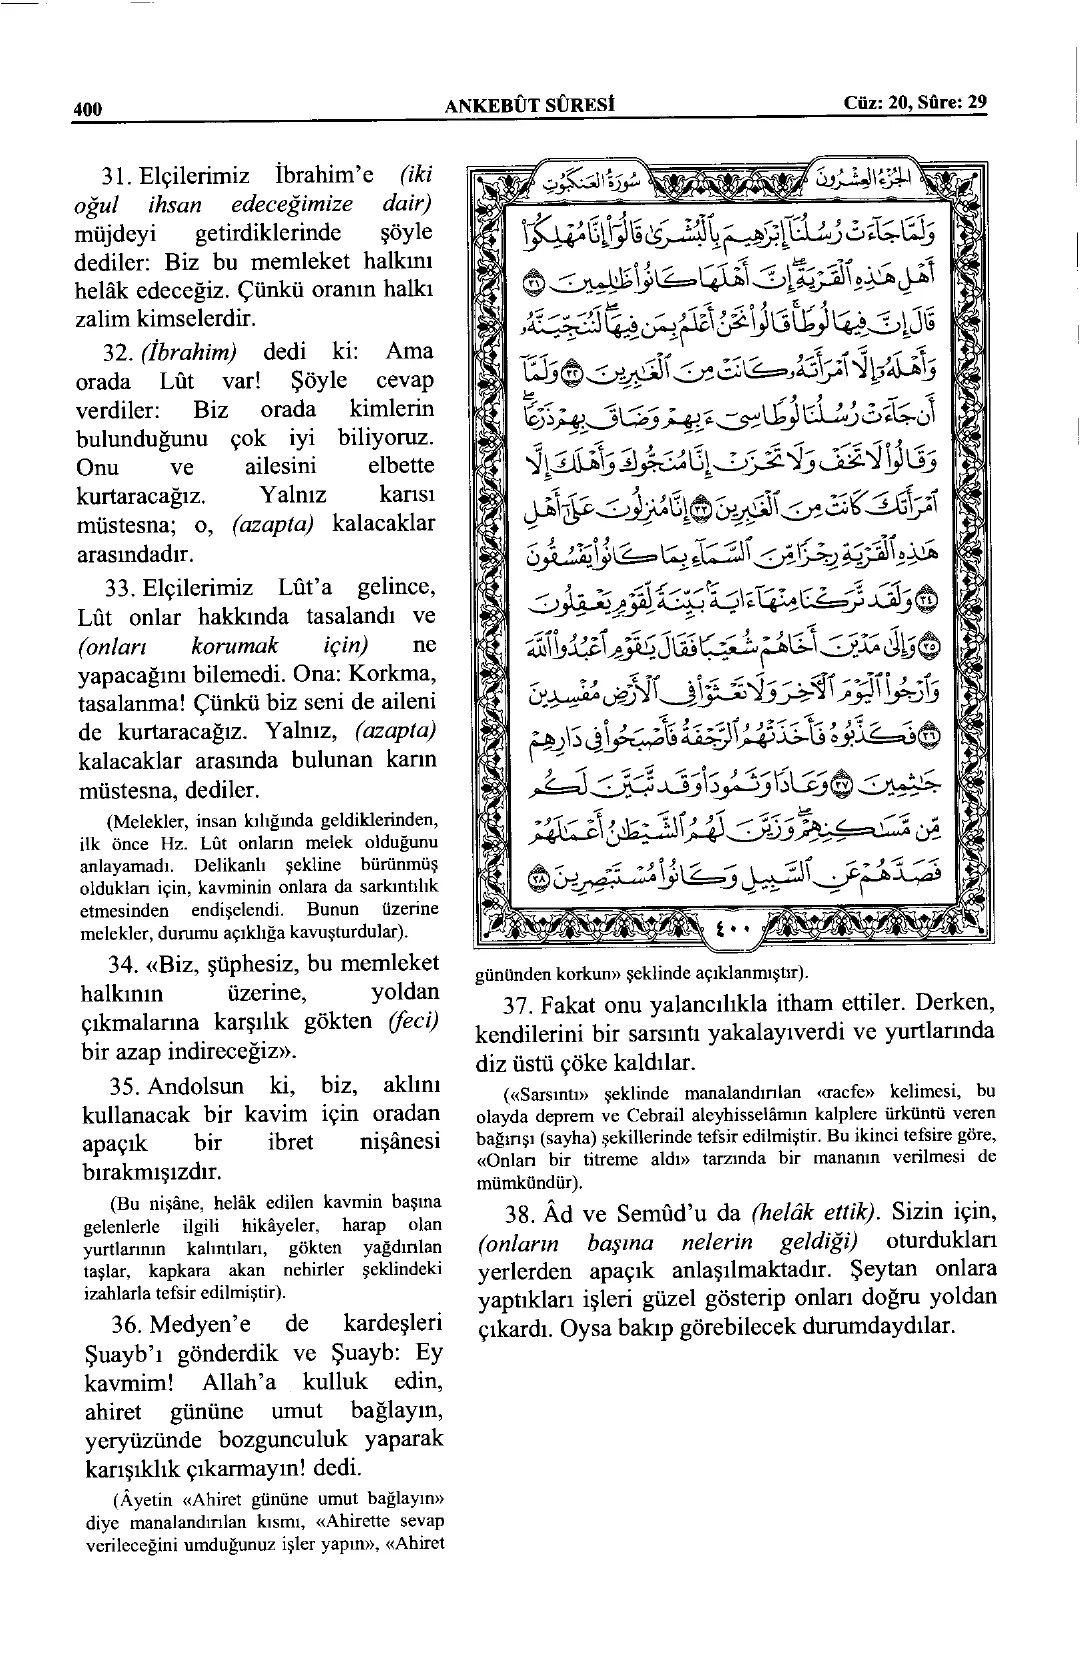 400
ANKEBÛT SÛRESİ
Cüz: 20, Sûre: 29
31. Elçilerimiz İbrahim’e (iki
oğul ihsan edeceğimize dair)
müjdeyi getirdiklerinde şöyle
dediler: Biz bu memleket halkını
helâk edeceğiz. Çünkü oranın halkı
zalim kimselerdir.
32. (İbrahim) dedi ki: Ama
orada Lût var! Şöyle cevap
verdiler: Biz orada kimlerin
bulunduğunu çok iyi biliyoruz.
Onu ve ailesini elbette
kurtaracağız. Yalnız karısı
müstesna; o, (azapta) kalacaklar
arasındadır.
33. Elçilerimiz Lût’a gelince,
Lût onlar hakkında tasalandı ve
(onları korumak için) ne
yapacağını bilemedi. Ona: Korkma,
tasalanma! Çünkü biz seni de aileni
de kurtaracağız. Yalnız, (azapta)
kalacaklar arasında bulunan karın
müstesna, dediler.
(Melekler, insan kılığında geldiklerinden,
ilk önce Hz. Lût onların melek olduğunu
anlayamadı. Delikanlı şekline bürünmüş
oldukları için, kavminin onlara da sarkıntılık
etmesinden endişelendi. Bunun üzerine
melekler, durumu açıklığa kavuşturdular).
34. «Biz, şüphesiz, bu memleket
halkının üzerine, yoldan
çıkmalarına karşılık gökten (feci)
bir azap indireceğiz».
35. Andolsun ki, biz, aklını
kullanacak bir kavim için oradan
apaçık bir ibret nişânesi
bırakmışızdır.
(Bu nişâne, helâk edilen kavmin başına
gelenlerle ilgili hikâyeler, harap olan
yurtlarının kalıntıları, gökten yağdırılan
taşlar, kapkara akan nehirler şeklindeki
izahlarla tefsir edilmiştir).
36. Medyen’e de kardeşleri
Şuayb’ı gönderdik ve Şuayb: Ey
kavmim! Allah’a kulluk edin,
ahiret gününe umut bağlayın,
yeryüzünde bozgunculuk yaparak
karışıklık çıkarmayın! dedi.
(Âyetin «Ahiret gününe umut bağlayın»
diye manalandırılan kısmı, «Ahirette sevap
verileceğini umduğunuz işler yapın», «Ahiret
سُورَةُ العَنكَبُوتِ
الجُزْءُ العِشْرُونَ
وَلَمَّا جَآءَتْ رُسُلُنَآ إِبْرَٰهِيمَ بِٱلْبُشْرَىٰ قَالُوٓا۟ إِنَّا مُهْلِكُوٓا۟
أَهْلِ هَٰذِهِ ٱلْقَرْيَةِ إِنَّ أَهْلَهَا كَانُوا۟ ظَٰلِمِينَ ٣١
قَالَ إِنَّ فِيهَا لُوطًا قَالُوا۟ نَحْنُ أَعْلَمُ بِمَن فِيهَا لَنُنَجِّيَنَّهُۥ
وَأَهْلَهُۥٓ إِلَّا ٱمْرَأَتَهُۥ كَانَتْ مِنَ ٱلْغَٰبِرِينَ ٣٢ وَلَمَّآ
أَن جَآءَتْ رُسُلُنَا لُوطًا سِىٓءَ بِهِمْ وَضَاقَ بِهِمْ ذَرْعًا
وَقَالُوا۟ لَا تَخَفْ وَلَا تَحْزَنْ إِنَّا مُنَجُّوكَ وَأَهْلَكَ إِلَّا
ٱمْرَأَتَكَ كَانَتْ مِنَ ٱلْغَٰبِرِينَ ٣٣ إِنَّا مُنزِلُونَ عَلَىٰٓ أَهْلِ
هَٰذِهِ ٱلْقَرْيَةِ رِجْزًا مِّنَ ٱلسَّمَآءِ بِمَا كَانُوا۟ يَفْسُقُونَ
٣٤ وَلَقَد تَّرَكْنَا مِنْهَآ ءَايَةًۢ بَيِّنَةً لِّقَوْمٍ يَعْقِلُونَ
٣٥ وَإِلَىٰ مَدْيَنَ أَخَاهُمْ شُعَيْبًا فَقَالَ يَٰقَوْمِ ٱعْبُدُوا۟ ٱللَّهَ
وَٱرْجُوا۟ ٱلْيَوْمَ ٱلْءَاخِرَ وَلَا تَعْثَوْا۟ فِى ٱلْأَرْضِ مُفْسِدِينَ
٣٦ فَكَذَّبُوهُ فَأَخَذَتْهُمُ ٱلرَّجْفَةُ فَأَصْبَحُوا۟ فِى دَارِهِمْ
جَٰثِمِينَ ٣٧ وَعَادًا وَثَمُودَا۟ وَقَد تَّبَيَّنَ لَكُم
مِّن مَّسَٰكِنِهِمْ وَزَيَّنَ لَهُمُ ٱلشَّيْطَٰنُ أَعْمَٰلَهُمْ
فَصَدَّهُمْ عَنِ ٱلسَّبِيلِ وَكَانُوا۟ مُسْتَبْصِرِينَ ٣٨
٤٠٠
gününden korkun» şeklinde açıklanmıştır).
37. Fakat onu yalancılıkla itham ettiler. Derken,
kendilerini bir sarsıntı yakalayıverdi ve yurtlarında
diz üstü çöke kaldılar.
(«Sarsıntı» şeklinde manalandırılan «racfe» kelimesi, bu
olayda deprem ve Cebrail aleyhisselâmın kalplere ürküntü veren
bağırışı (sayha) şekillerinde tefsir edilmiştir. Bu ikinci tefsire göre,
«Onları bir titreme aldı» tarzında bir mananın verilmesi de
mümkündür).
38. Âd ve Semûd’u da (helâk ettik). Sizin için,
(onların başına nelerin geldiği) oturdukları
yerlerden apaçık anlaşılmaktadır. Şeytan onlara
yaptıkları işleri güzel gösterip onları doğru yoldan
çıkardı. Oysa bakıp görebilecek durumdaydılar.